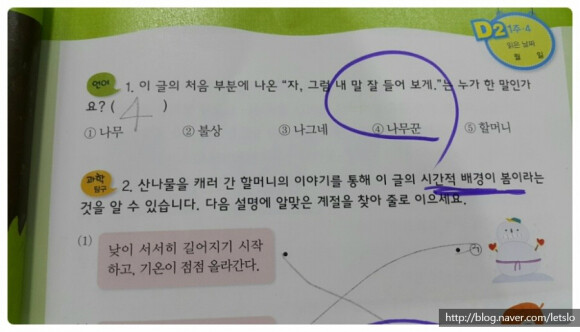 D2 1주·4
읽은 날짜
월 일
언어 1. 이 글의 처음 부분에 나온 "자, 그럼 내 말 잘 들어 보게."는 누가 한 말인가
요? ( 4 )
① 나무 ② 불상 ③ 나그네 ④ 나무꾼 ⑤ 할머니
과학
탐구 2. 산나물을 캐러 간 할머니의 이야기를 통해 이 글의 시간적 배경이 봄이라는
것을 알 수 있습니다. 다음 설명에 알맞은 계절을 찾아 줄로 이으세요.
(1) 낮이 서서히 길어지기 시작
하고, 기온이 점점 올라간다.
http://blog.naver.com/letslo